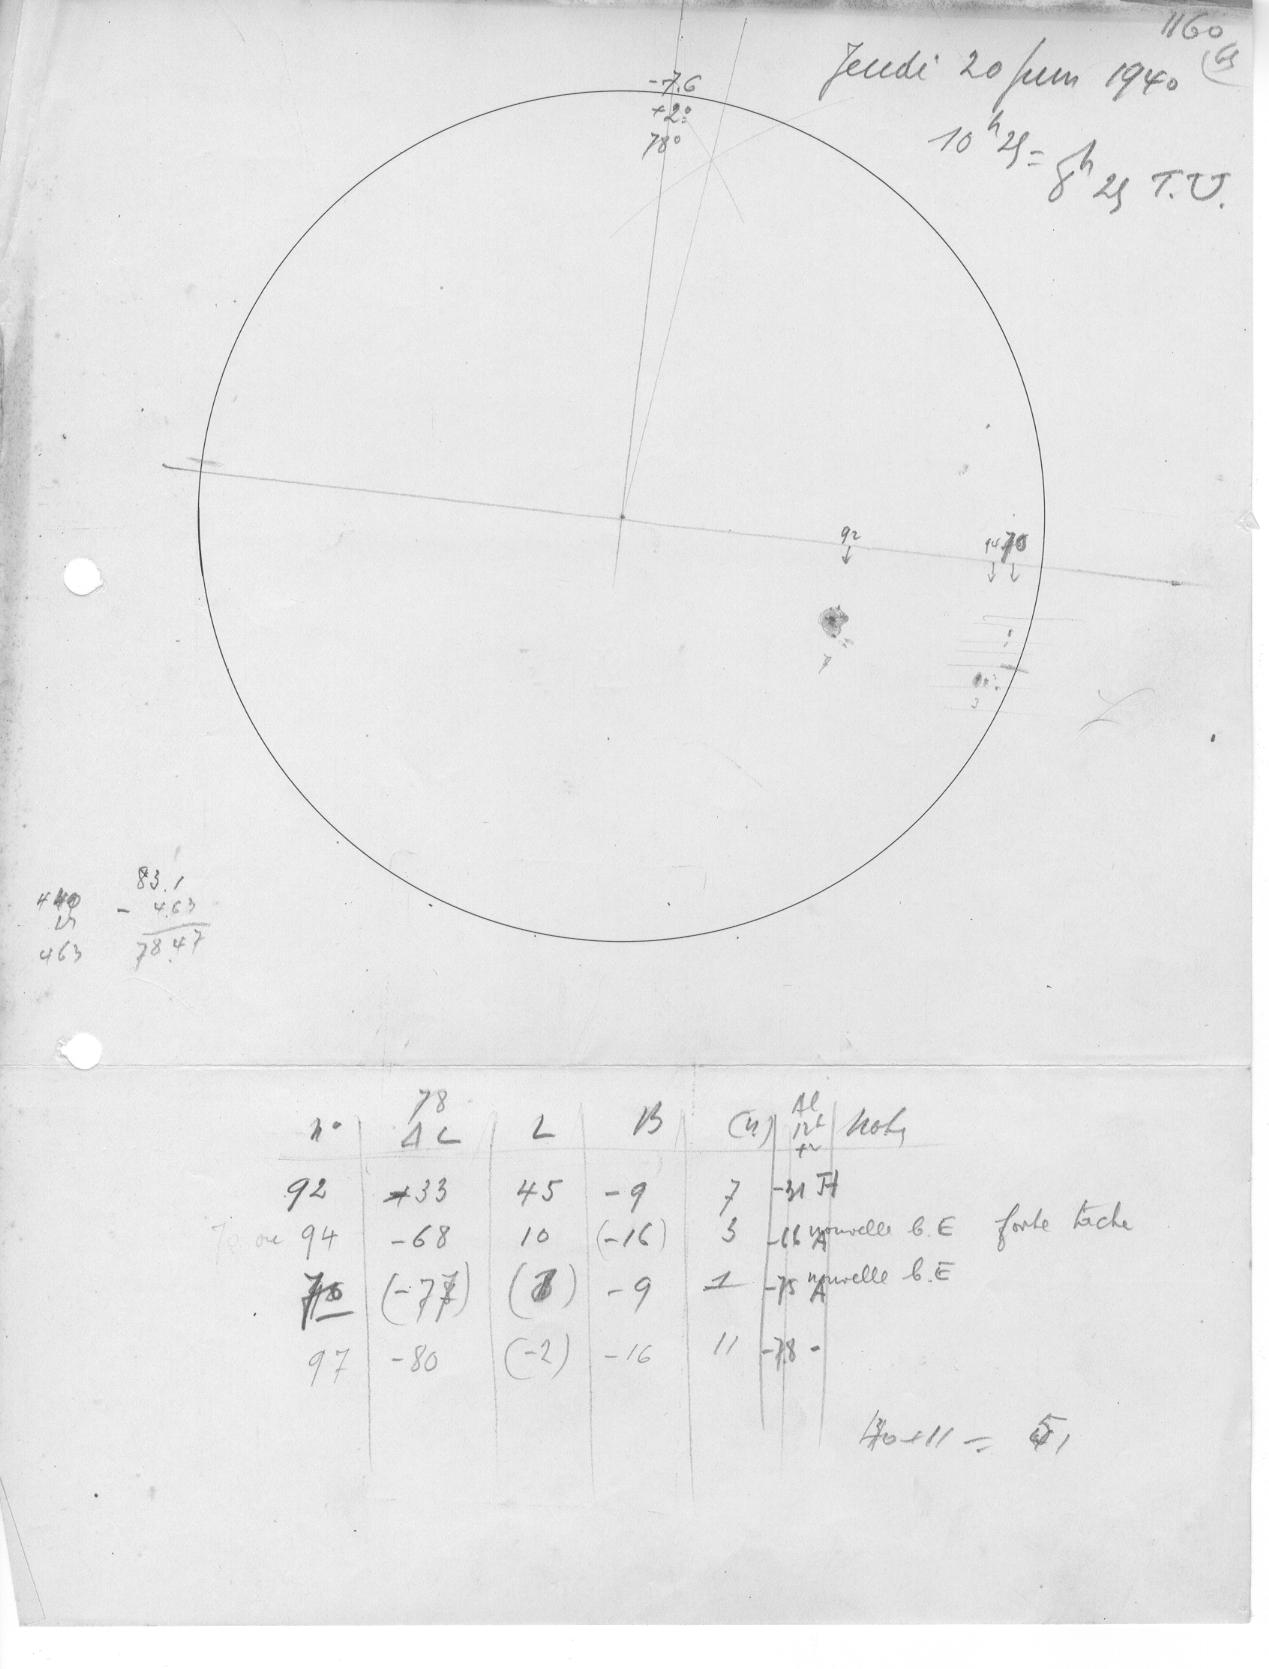 1160
Jeudi 20 Juin 1940
10h 25 =
8h 25 T.U.
-7.6
+2°
78°
92
94 70
7
3
83.1
- 463
7847
440
23
463
78
n° ΔL L B (n) Δl 12h Notes
92 +33 45 -9 7 -31 H
94 -68 10 (-16) 3 -66 A nouvelle b.E forte tache
70 (-77) (1) -9 1 -75 A nouvelle b.E
97 -80 (-2) -16 11 -78 -
40+11 = 51